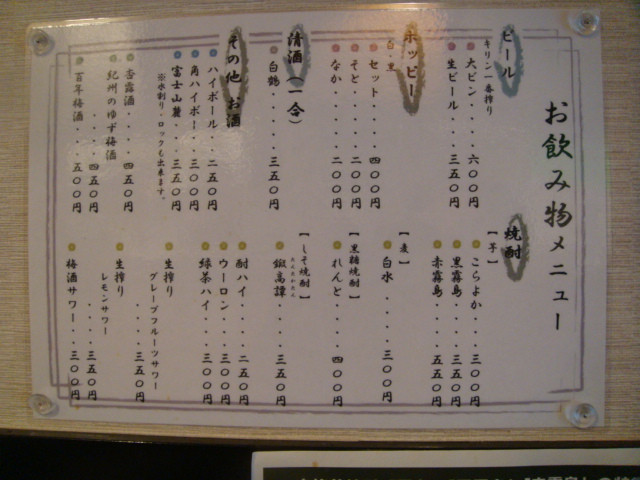 お飲み物メニュー
ビール
キリン一番搾り
大ビン・・・六〇〇円
生ビール・・・三五〇円
ホッピー
白・黒
セット・・・四〇〇円
そと・・・・二〇〇円
なか・・・・二〇〇円
清酒(一合)
白鶴・・・・三五〇円
その他 お酒
ハイボール・・二五〇円
角ハイボール・・三〇〇円
富士山麓・・・三五〇円
※水割り・ロックも出来ます。
杏露酒・・・・四五〇円
紀州のゆず梅酒
・・・・四五〇円
百年梅酒・・・・五〇〇円
焼酎
【芋】
こらよか・・・三〇〇円
黒霧島・・・・三五〇円
赤霧島・・・・五五〇円
【麦】
白水・・・・三〇〇円
【黒糖焼酎】
れんと・・・四〇〇円
【しそ焼酎】
鍛高譚・・・三五〇円
たんたかたん
酎ハイ・・・二五〇円
ウーロン・・・三〇〇円
緑茶ハイ・・・三〇〇円
生搾り
グレープフルーツサワー
・・・・三五〇円
生搾り
レモンサワー
・・・・三五〇円
梅酒サワー・・三〇〇円